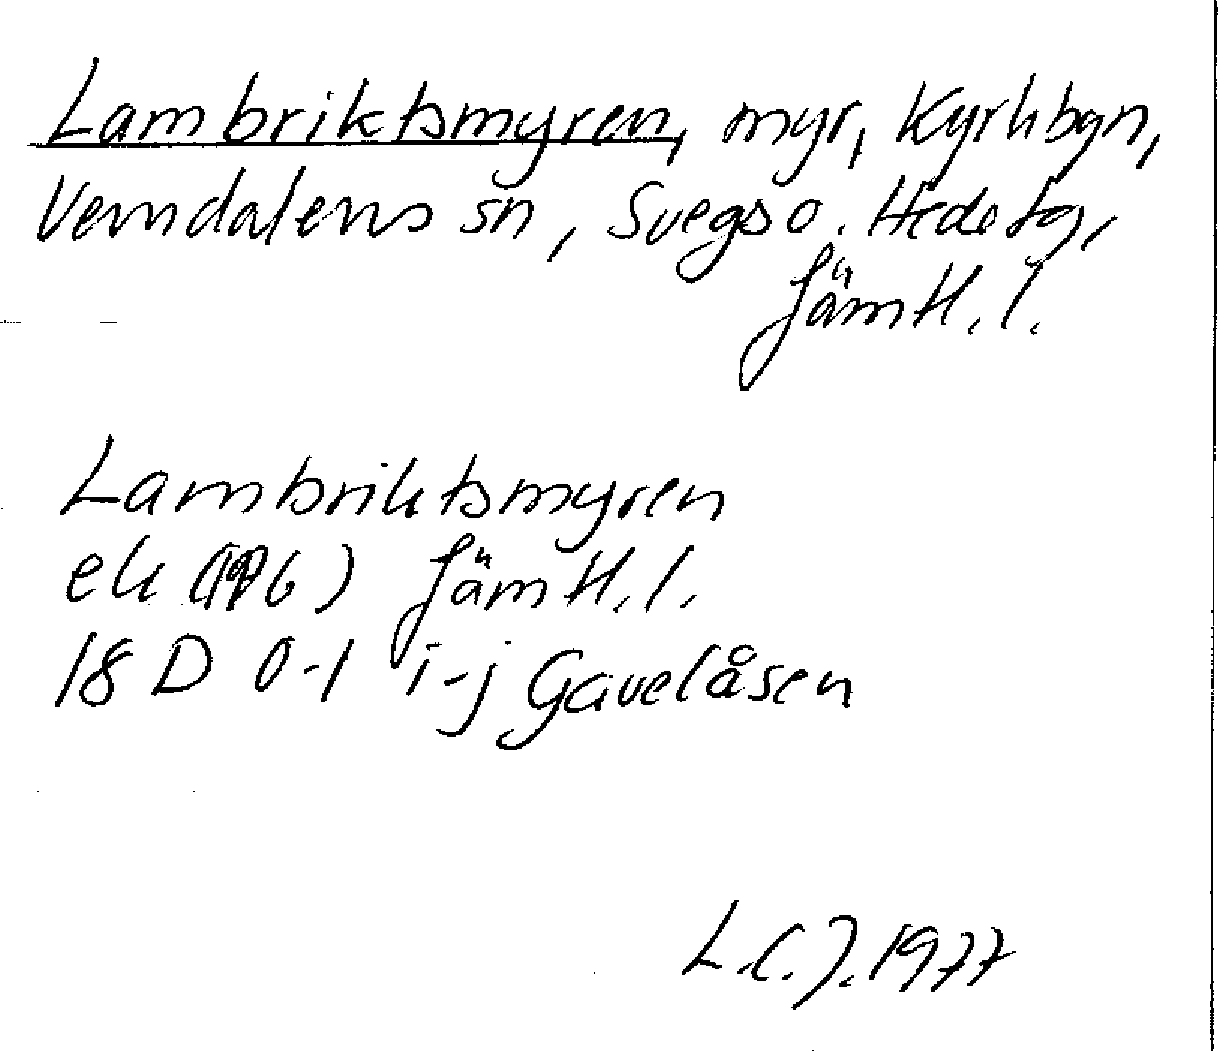 Lambriktsmyren, myr, Kyrkbyn,
Vemdalens sn, Svegs o. Hede tg,
Jämtl. l.
Lambriktsmyren
ek (1976) Jämtl. l.
18 D 0-1 i-j Gavelåsen
L.C.J. 1977